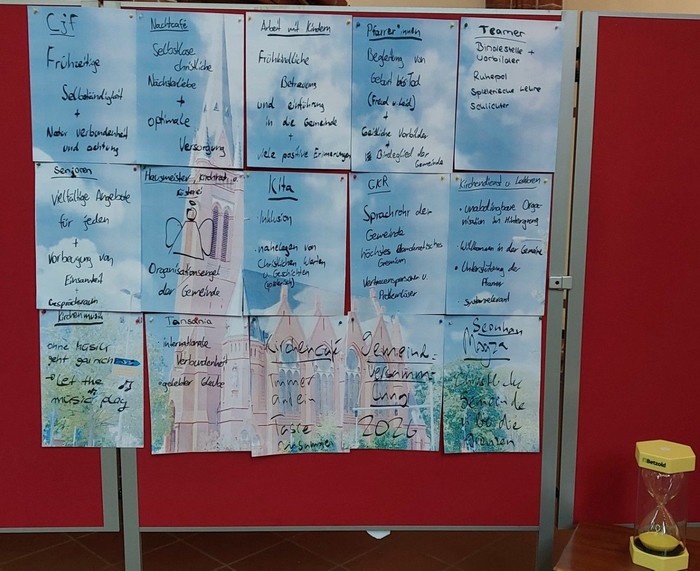 CjF
Frühzeitige
Selbständigkeit
+
Natur verbundenheit
und achtung
Nachtcafé
Selbstlose
christliche
Nächstenliebe
+
optimale
Versorgung
Arbeit mit Kindern
Frühkindliche
Betreuung
und einführung
in die Gemeinde
+
viele positive Erinnerungen
Pfarrer*innen
Begleitung von
Geburt bis Tod
(Freud u. Leid)
+
Geistliche Vorbilder
Bindeglied der
Gemeinde
Teamer
Bindeselle +
Vorbilder
Ruhepol
Spielerische Lehre
Schlichter
Senioren
Vielfältige Angebote
für jeden
+
Vorbeugung von
Einsamkeit
Gesprächskreis
Hausmeister, Kirchdienst, u.
Küsterei
Organisationsengel
der Gemeinde
Kita
· Inklusion
· nahelegen von
Christlichen Werten
u. Geschichten
GKR
Sprachrohr der
Gemeinde
höchstes demokratisches
Gremium
Vertrauensperson u.
Problemlöser
Kirchendienst u. Lektoren
· unabdingbare Orga-
nisation im Hintergrund
Willkommen in der Gemeinde
· Unterstützung der
Pfarrer
Systemrelevant
Kirchenmusik
ohne Musik
geht gar nichts
→ Let the
music play
Tansania
internationale
Verbundenheit
· gelebter Glaube
Kirchencafé
Immer
an ein
Tasse
zusammen
Gemeinde-
versamm-
lung
2026
Seonhan
Maja
Christliche
Gemeinde
über die
Grenzen
Betzold